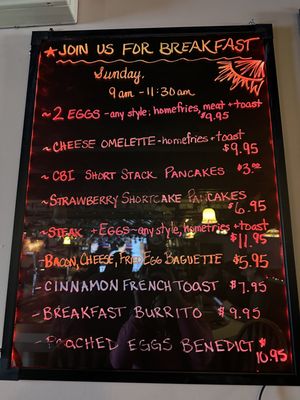 ★ JOIN US FOR BREAKFAST
Sunday,
9am - 11:30am
~2 EGGS - any style, homefries, meat + toast
$9.95
~CHEESE OMELETTE - homefries + toast
$9.95
~CBI SHORT STACK PANCAKES $3.00
~STRAWBERRY SHORTCAKE PANCAKES
$6.95
~STEAK + EGGS ~ any style, homefries + toast
$11.95
~BACON, CHEESE, FRIED EGG BAGUETTE $5.95
-CINNAMON FRENCH TOAST $7.95
-BREAKFAST BURRITO $9.95
- POACHED EGGS BENEDICT
$10.95